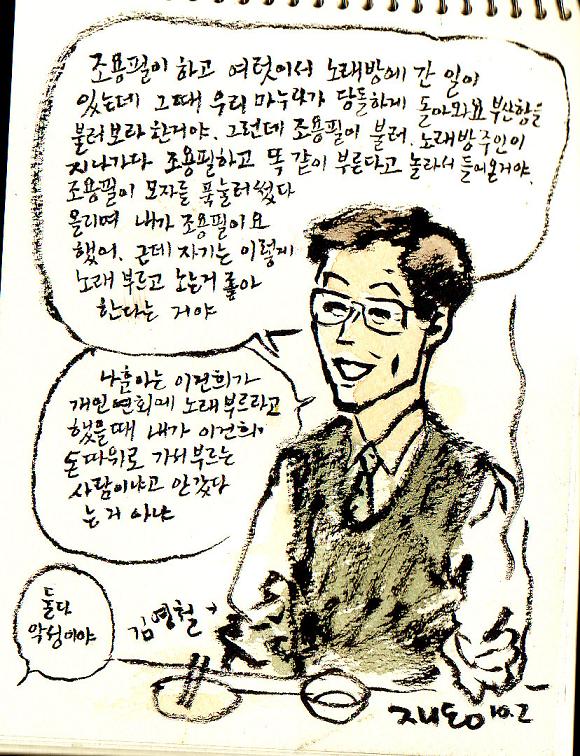 조용필이 하고 여럿이서 노래방에 간 일이
있는데 그때 우리 마누라가 당돌하게 돌아와요 부산항을
불러보라 한거야. 그런데 조용필이 불러. 노래방주인이
지나가다 조용필하고 똑같이 부른다고 놀라서 들어온거야.
조용필이 모자를 푹눌러썼다
올리며 내가 조용필이요
했어. 근데 자기는 이렇게
노래 부르고 노는거 좋아
한다는 거야
나훈아는 이건희가
개인연회에 노래부르라고
했을때 내가 이건희
돈 따위로 가서부르는
사람이냐고 안갔다
는거 아냐
둘다
악성이야
김영철
재동 10.2